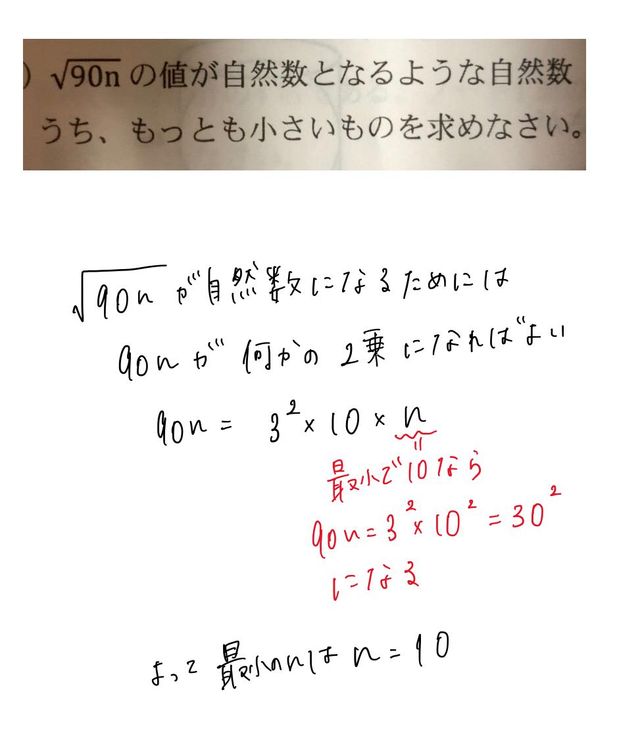 ) √90n の値が自然数となるような自然数
うち、もっとも小さいものを求めなさい。
√90n が自然数になるためには
90n が 何かの 2乗 になればよい
90n = 3² × 10 × n
=
最小で10なら
90n = 3² × 10² = 30²
になる
よって 最小のnは n = 10